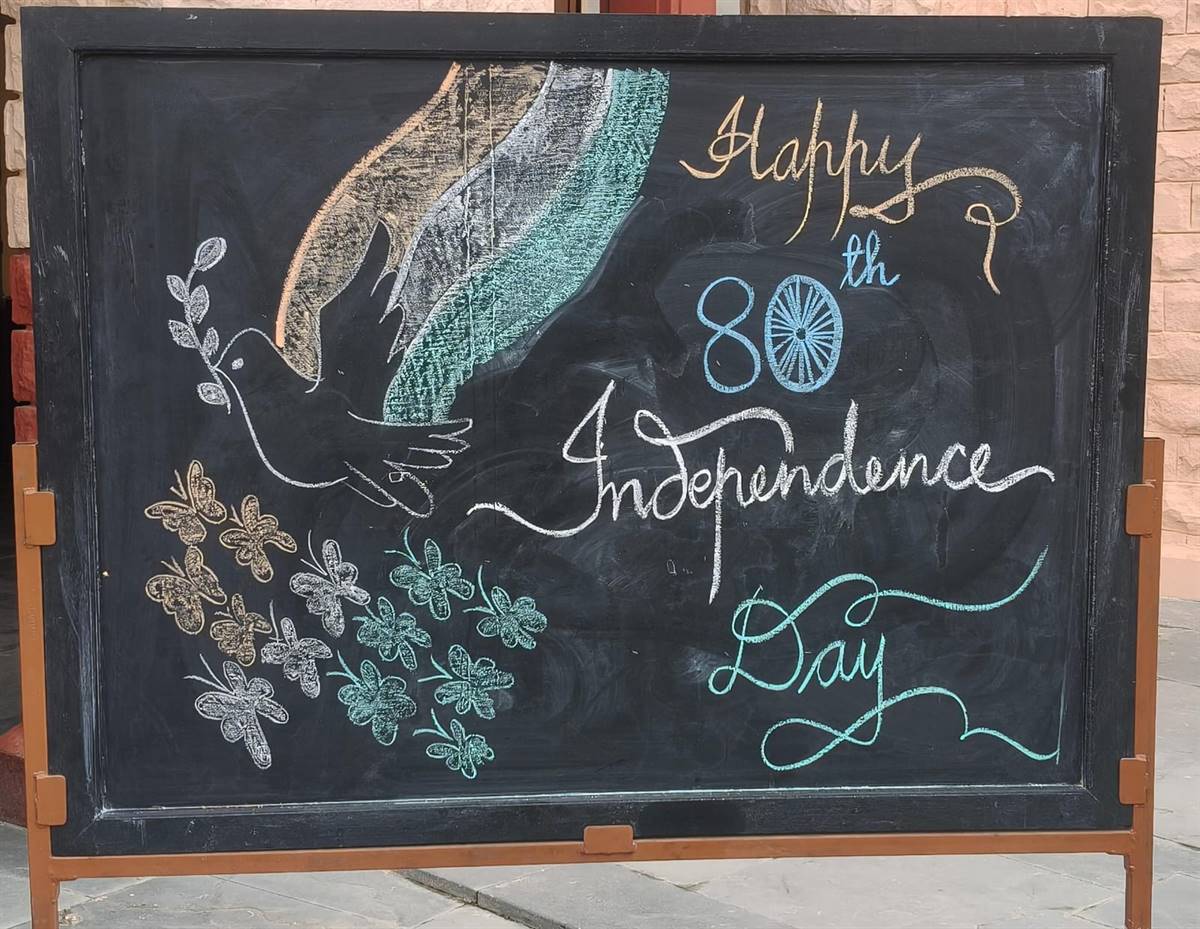 Happy
80th
Independence
Day